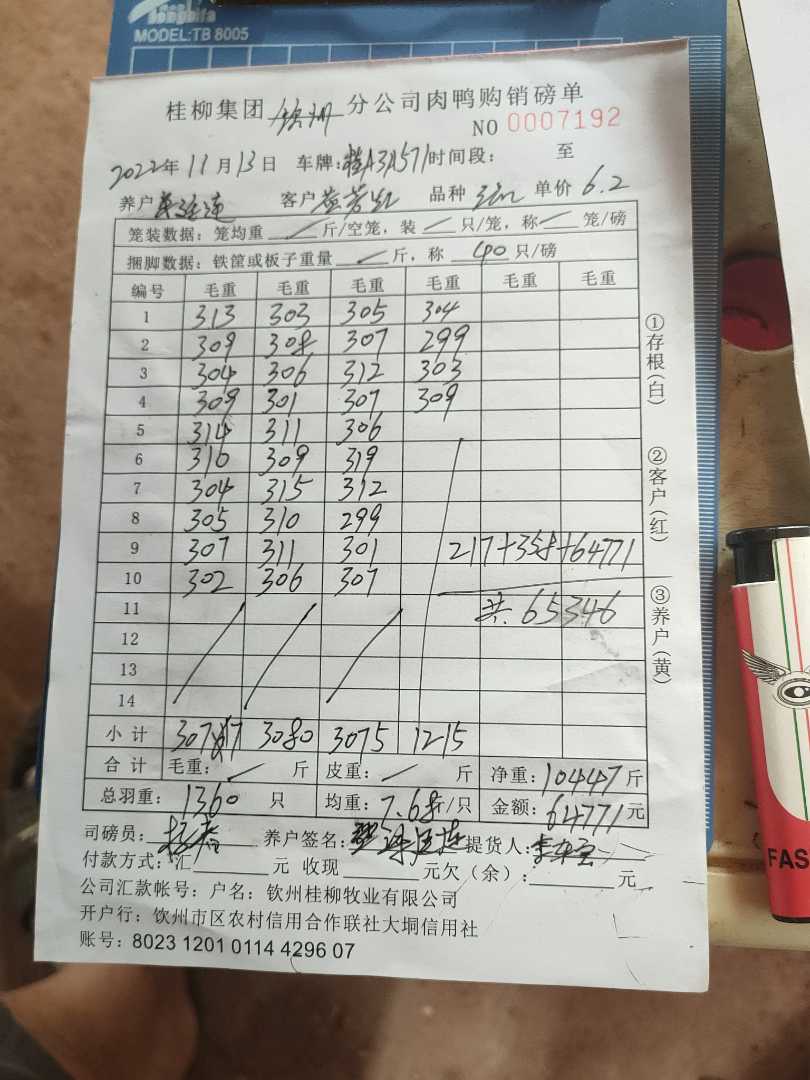 MODEL:TB 8005
桂柳集团 钦州 分公司肉鸭购销磅单
NO 0007192
2022年 11月13日 车牌:桂A3A571 时间段: 至
养户 客户 品种 单价 6.2
笼装数据: 笼均重 斤/空笼, 装 只/笼, 称 笼/磅
捆脚数据: 铁筐或板子重量 斤, 称 40 只/磅
编号 毛重 毛重 毛重 毛重 毛重 毛重
1 313 303 305 304
2 309 308 307 299
3 304 306 312 303
4 309 301 307 309
5 314 311 306
6 316 309 319
7 304 315 312
8 305 310 299
9 307 311 301 217+358+64771
10 302 306 307
11 共. 65346
12
13
14
小计 307 7 3080 3075 1215
合计 毛重: 斤 皮重: 斤 净重: 10447 斤
总羽重: 1360 只 均重: 7.68 斤/只 金额: 64771 元
司磅员: 养户签名: 提货人:
付款方式: 汇 元 收现 元欠(余): 元
公司汇款帐号: 户名: 钦州桂柳牧业有限公司
开户行: 钦州市区农村信用合作联社大垌信用社
账号: 8023 1201 0114 4296 07
①存根(白)
②客户(红)
③养户(黄)
FAS